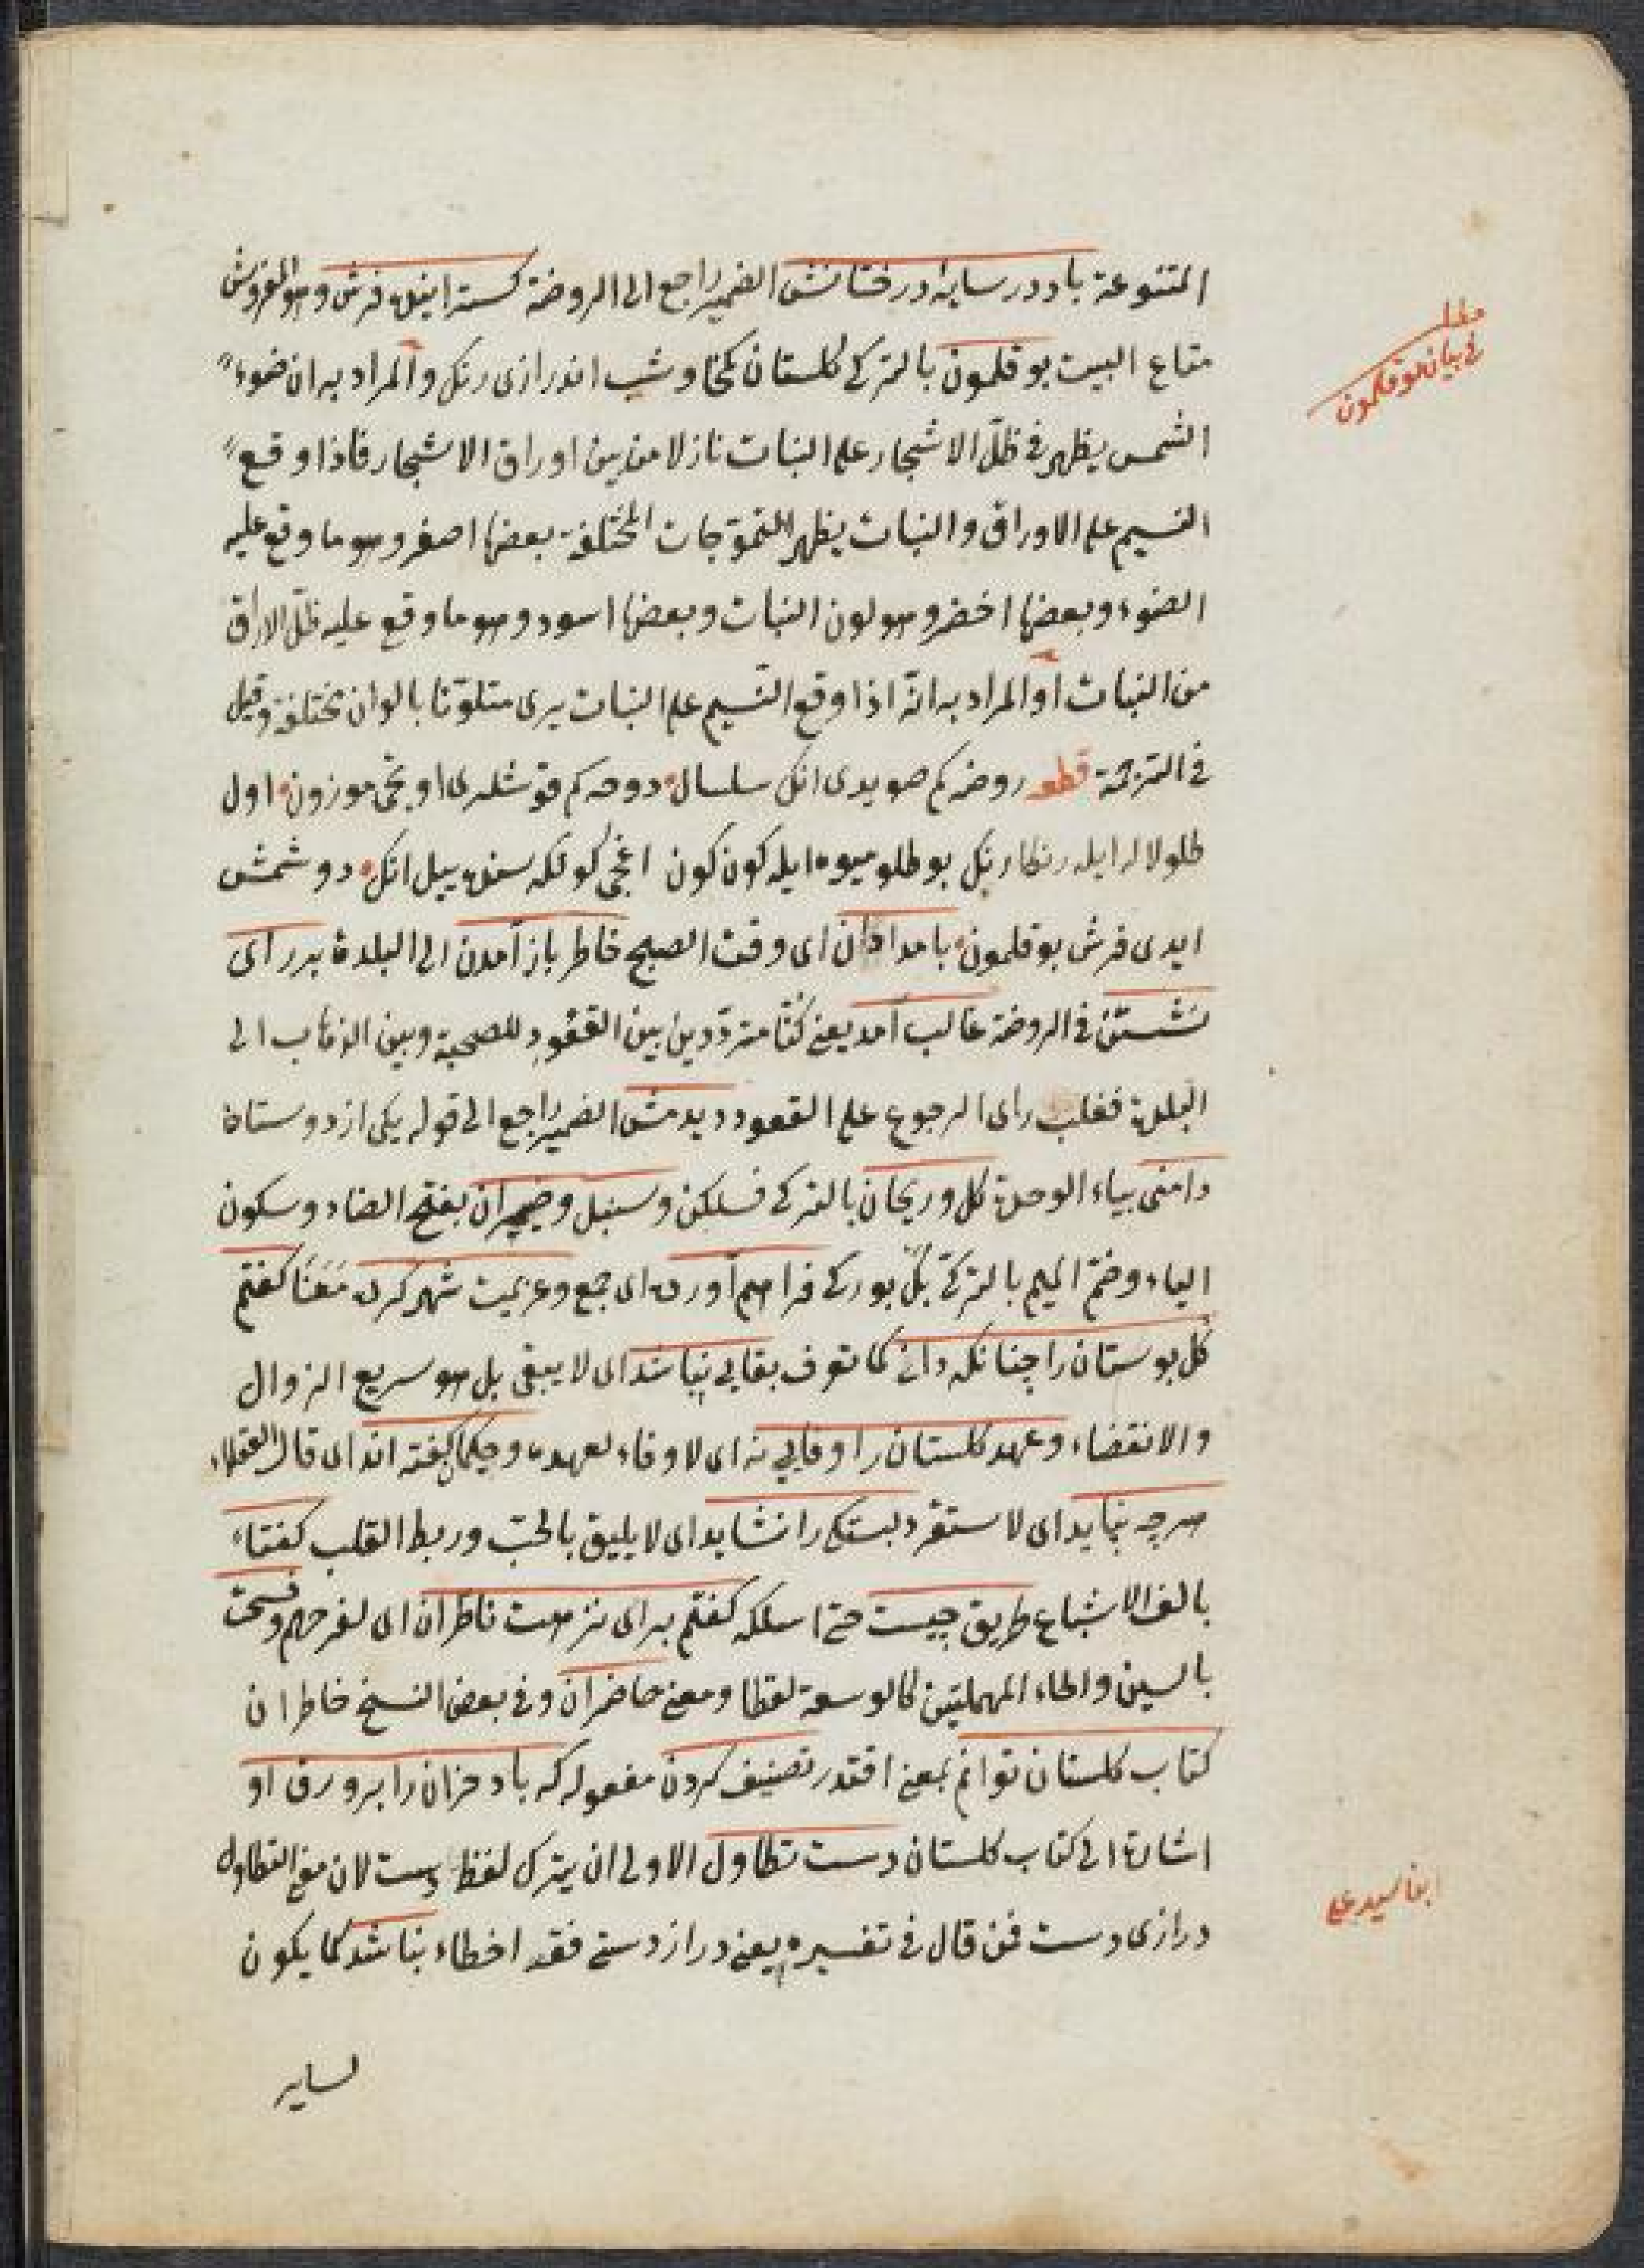 المتنوعة باد در سایهٔ درختانش الضمیر راجع الی الروضة کسترانیده فرش وهو المفروش
متاع البیت بوقلمون بالترکی کلستان کمخا وشب اندرازی رنک والمراد به ان ضوء
الشمس یظهر فی ظلّ الاشجار علی النبات نازلا من بین اوراق الاشجار فاذا وقع
النسیم علی الاوراق والنبات یظهر التموّجات المختلفة بعضها اصفر وهو ما وقع علیه
الضوء وبعضها اخضر وهو لون النبات وبعضها اسود وهو ما وقع علیه ظلّ الاوراق
من النبات او المراد به انّه اذا وقع النّسیم علی النبات یری متلوّنا بالوان مختلفة وقیل
فی الترجمة قطعه روضه کم صویدی انک سلسال دوحه کم قوشلری اونجی موزون اول
طلو لاله ایله رنکارنک بو طلو میوه ایله کون کون اغجی کولکه سنده ییل انک دوشمش
ایدی فرش بوقلمون بامدادان ای وقت الصبح خاطر باز آمدن الی البلدة بر رای
نشستن فی الروضة غالب آمد یعنی کنّا متردّدین بین القعود للصحبة وبین الذهاب الی
البلدة فغلب رای الرجوع علی القعود دیدمش الضمیر راجع الی قوله یکی از دوستان
دامنی بیاء الوحدة کل وریحان بالترکی فسلکن وسنبل وضیمران بفتح الضاد وسکون
الیاء وضمّ المیم بالترکی بک بورکی فراهم آورده ای جمع وعزیمت شهر کرده مَعَنَا کفتم
کل بوستان را چنانکه دانی کما تعرف بقایی نباشد ای لا یبقی بل هو سریع الزوال
والانقضاء وعهد کلستان را وفایی نه ای لا وفاء لعهده وحکما کفته اند ای قال العقلاء
هرچه نپاید ای لا یستقر دلبستکی را نشاید ای لا یلیق بالحبّ وربط القلب کفتاء
بالف الاشباع طریق چیست حتی اسلکه کفتم برای نزهت ناظران ای لفرحهم وفسحت
بالسین والحاء المهملتین کالوسعة لفظا ومعنی حاضران وفی بعض النسخ خاطران
کتاب کلستان توانم بمعنی اقتدر تصنیف کردن مفعوله که باد خزان را بر ورق او
اشارة الی کتاب کلستان دست تطاول الاولی ان یترک لفظ دست لان معنی التطاول
درازی دست فمن قال فی تفسیره یعنی دراز دستی فقد اخطاء نباشد کما یکون
لسایر
مطلب
فی بیان بوقلمون
ابن سید علی